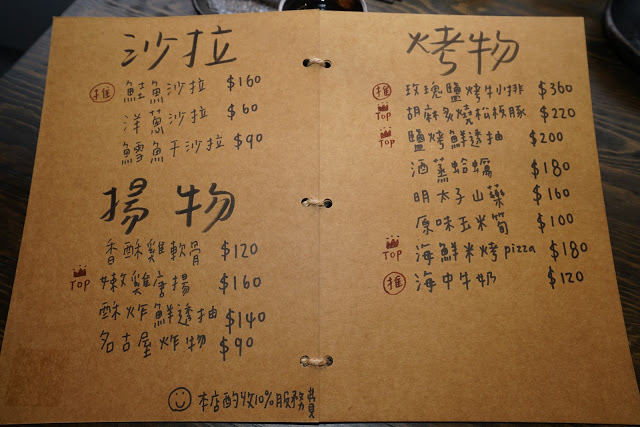 沙拉
推 鮭魚沙拉 $160
洋蔥沙拉 $60
鱈魚干沙拉 $90
揚物
香酥雞軟骨 $120
TOP 嫩雞唐揚 $160
酥炸鮮透抽 $140
名古屋炸物 $90
本店酌收10%服務費
烤物
推 玫瑰鹽烤牛小排 $360
TOP 胡麻炙燒松板豚 $220
TOP 鹽烤鮮透抽 $200
酒蒸蛤蠣 $180
明太子山藥 $160
原味玉米筍 $100
TOP 海鮮米烤pizza $180
推 海中牛奶 $120